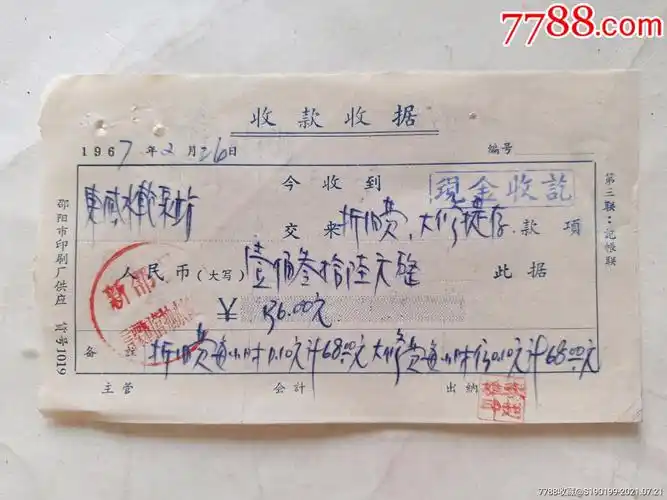 7788.com
收款收据
1967年2月26日 编号
今收到 现金收訖
交来折旧费、大修提存款项
人民币(大写)壹佰叁拾陆元正 此据
¥ 136.00元
备注 折旧费每小时0.10元计68.00元大修费每小时0.10元计68.00元
主管 会计 出纳
第三联:记帐联
邵阳市印刷厂供应 货号1019
7788收藏@8190199-2021.07.21